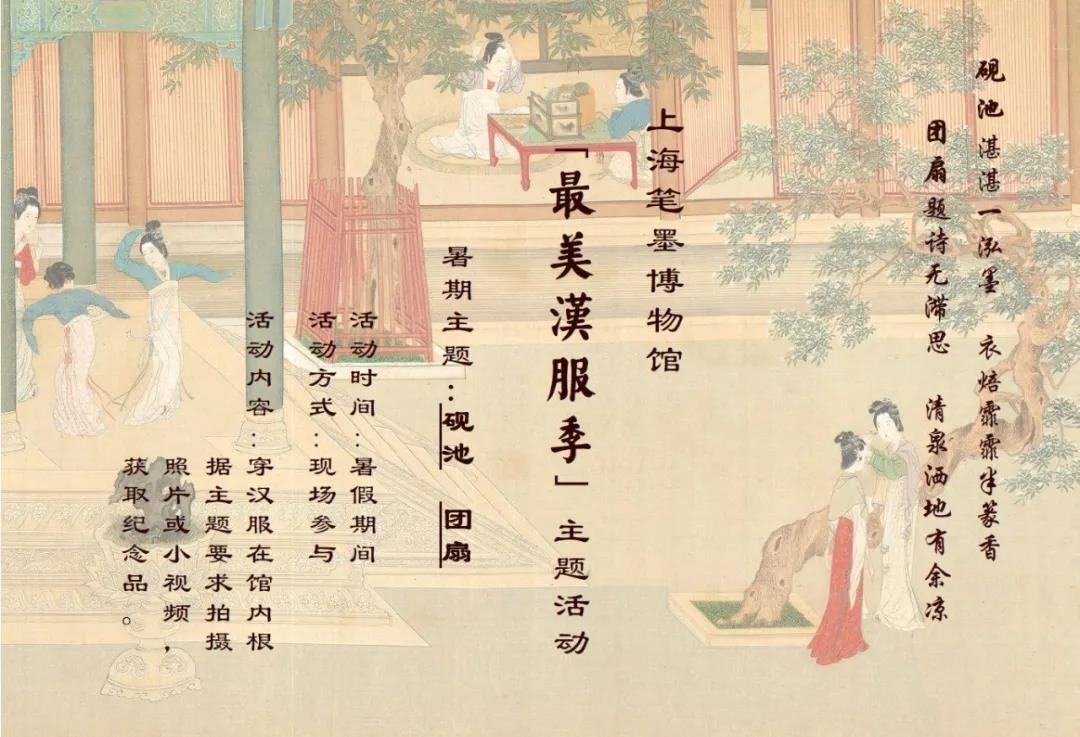 砚池湛湛一泓墨 衣焙霏霏半篆香
团扇题诗无滞思 清泉洒地有余凉
上海笔墨博物馆
「最美漢服季」主题活动
暑期主题：砚池 团扇
活动时间：暑假期间
活动方式：现场参与
活动内容：穿汉服在馆内根
据主题要求拍摄
照片或小视频，
获取纪念品。